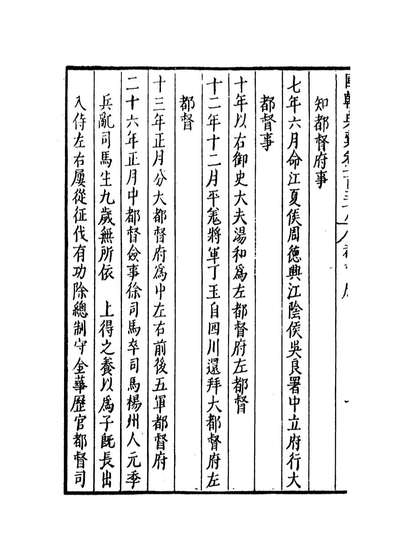 知都督府事
七年六月命江夏侯周德興江陰侯吳良署中立府行大
都督事
十年以右御史大夫湯和爲左都督府左都督
十二年十二月平羌將軍丁玉自四川還拜大都督府左
都督
十三年正月分大都督府爲中左右前後五軍都督府
二十六年正月中都督僉事徐司馬卒司馬楊州人元季
兵亂司馬生九歲無所依 上得之養以爲子旣長出
入侍左右屢從征伐有功除總制守金華歷官都督司